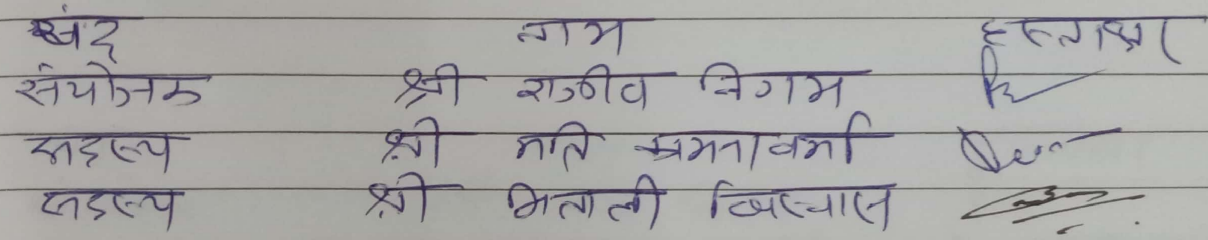 नाम हस्ताक्षर
संयोजक श्री राजीव निगम
सदस्य श्री मति वर्मा
सदस्य श्री मिताली विस्वास